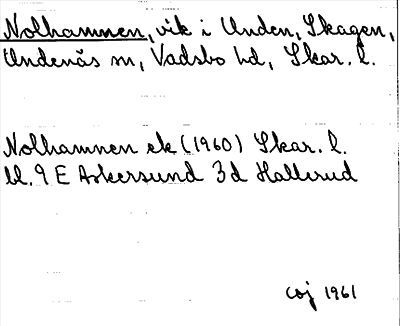 Nolhamnen, vik i Unden, Skagen,
Undenäs sn, Vadsbo hd, Skar. l.
Nolhamnen ek (1960) Skar. l.
bl. 9 E Askersund 3d Hallerud
CoJ 1961